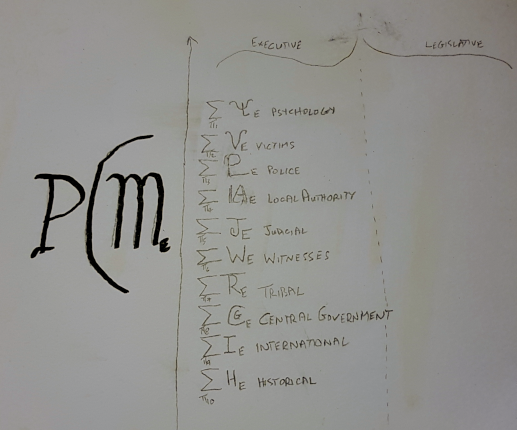 EXECUTIVE LEGISLATIVE
P(mE
Σ ΨE PSYCHOLOGY
Σ VE VICTIMS
Σ PE POLICE
Σ LAE LOCAL AUTHORITY
Σ JE JUDICIAL
Σ WE WITNESSES
Σ RE TRIBAL
Σ GE CENTRAL GOVERNMENT
Σ IE INTERNATIONAL
Σ HE HISTORICAL